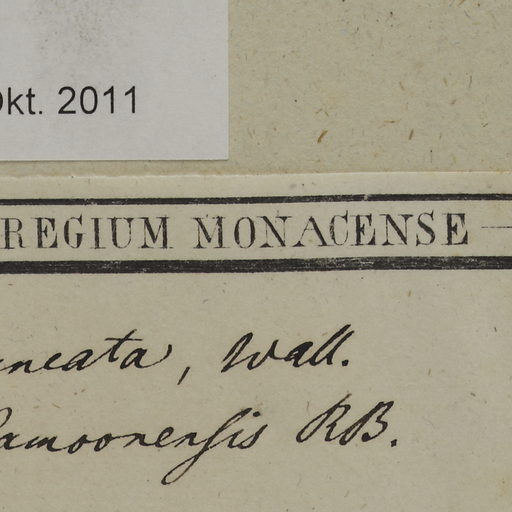 Okt. 2011
REGIUM MONACENSE —
uneata, Wall.
amoonensis RB.